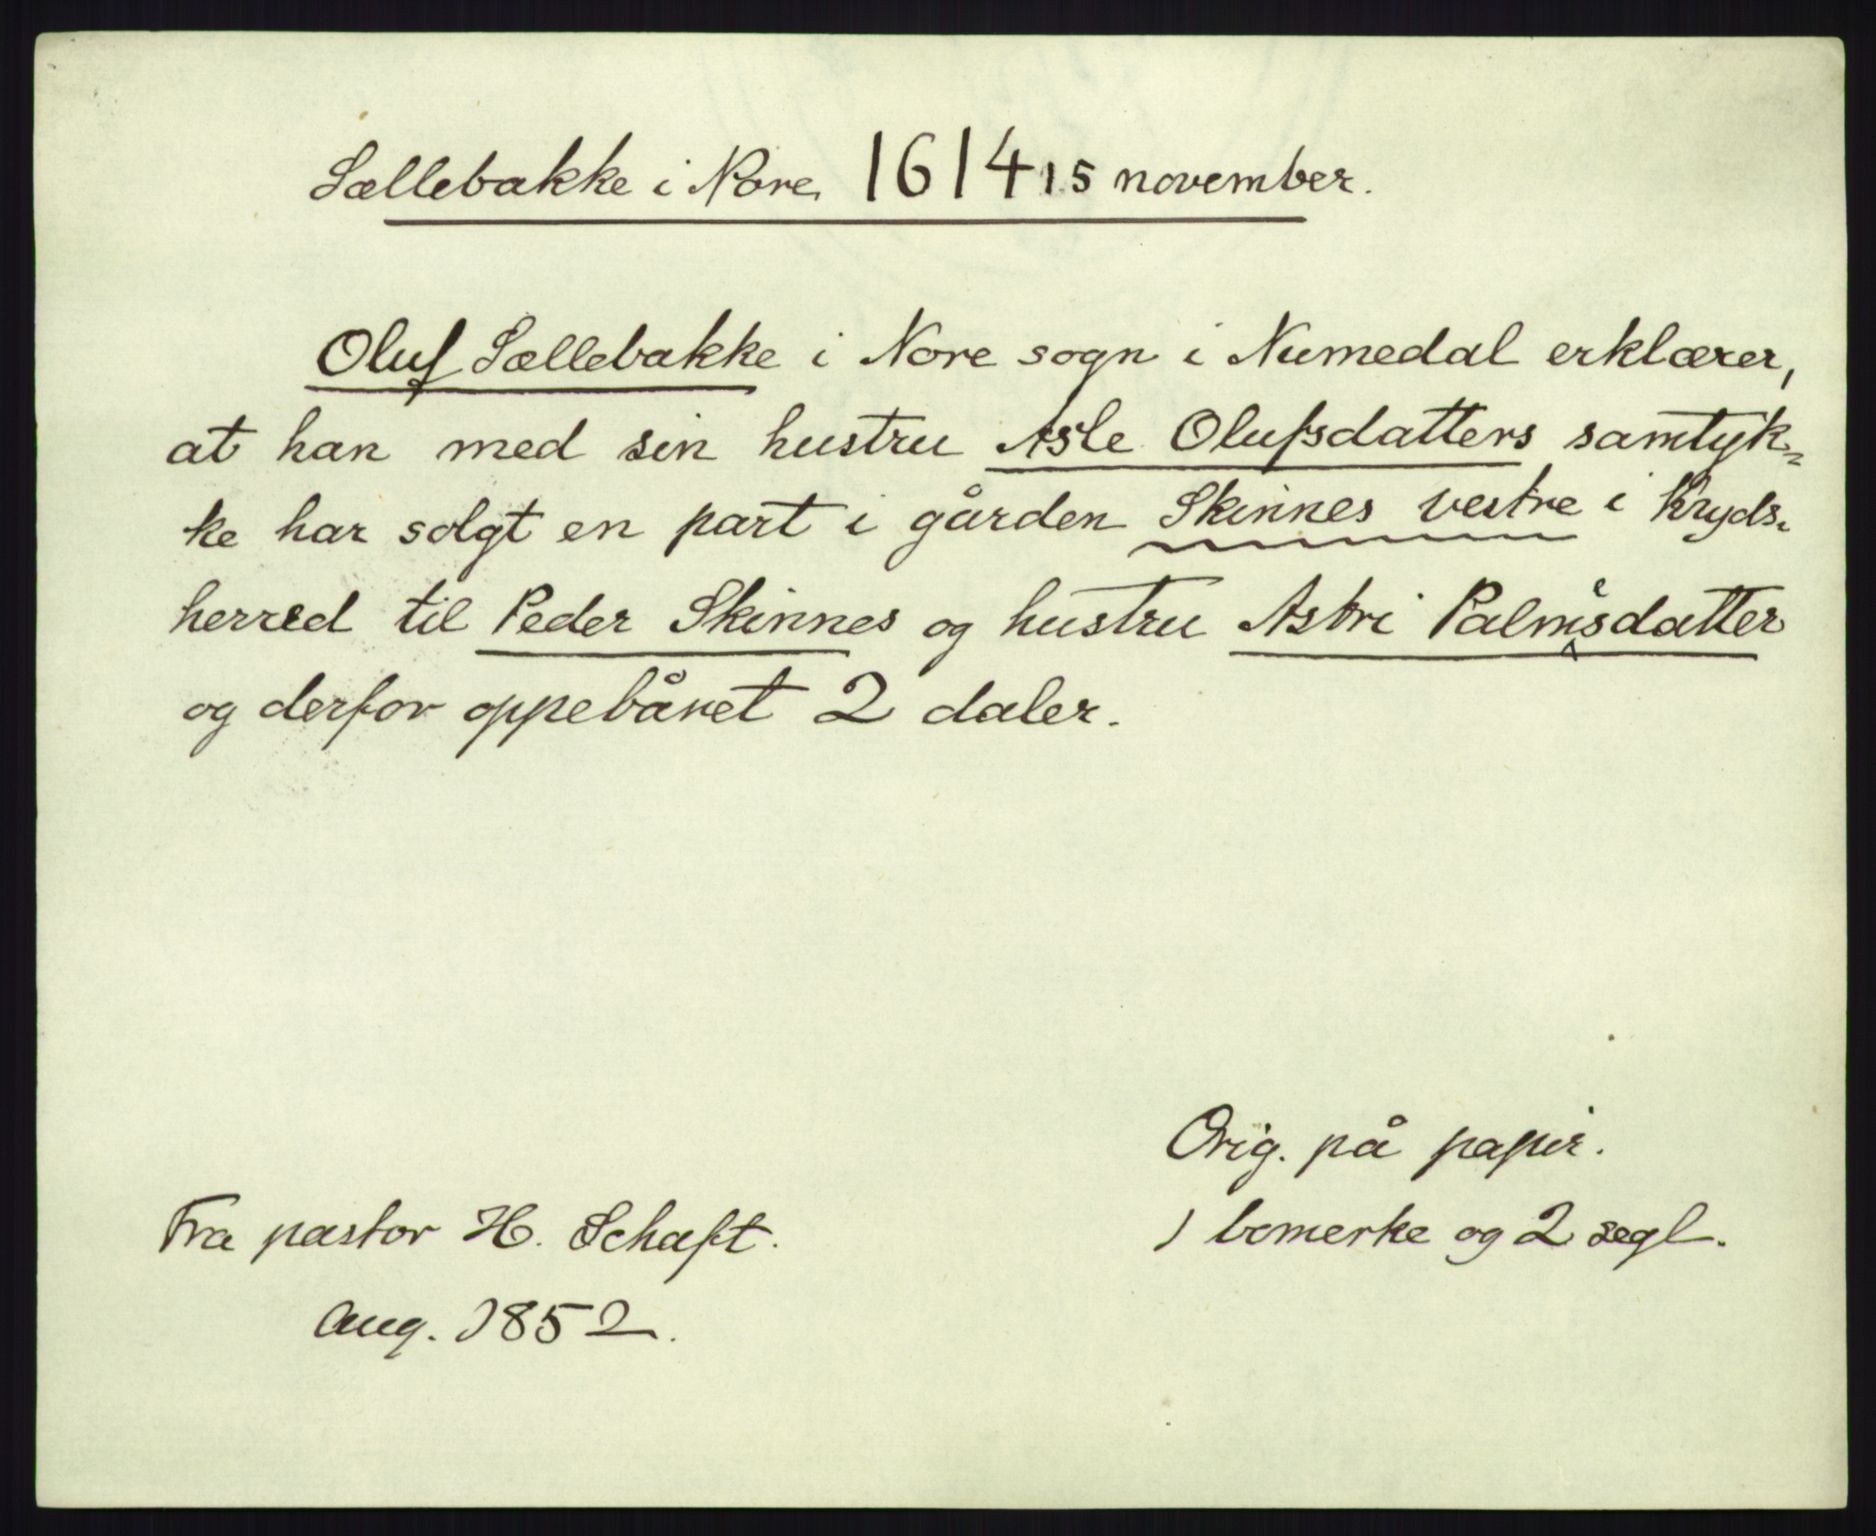 Sællebakke i Nore, 1614 15 november.
Oluf Sællebakke i Nore sogn i Numedal erklærer,
at han med sin hustru Asle Olufsdatters samtyk-
ke har solgt en part i gården Skinnes vestre i Kryds-
herred til Peder Skinnes og hustru Astri Palmsdatter
og derfor oppebåret 2 daler.
Orig. på papir.
1 bomerke og 2 segl.
Fra pastor H. Schaft.
Aug. 1852.